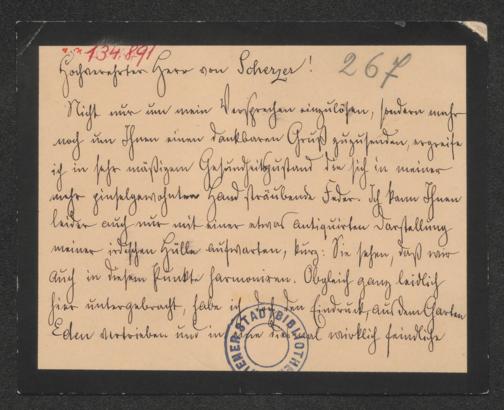 134.891
267
Hochverehrter Herr von Scherzer!
Nicht nur um mein Versprechen einzulösen, sondern mehr
noch um Ihnen einen dankbaren Gruß zuzusenden, ergreife
ich in sehr mäßigem Gesundheitszustand die sich in meiner
mehr pinselgewohnten Hand sträubende Feder. Ich kann Ihnen
leider auch nur mit einer etwas antiquirten Darstellung
meiner irdischen Hülle aufwarten, kurz: Sie sehen, daß wir
auch in diesem Punkte harmoniren. Obgleich ganz leidlich
hier untergebracht, habe ich den Eindruck, aus dem Garten
Eden vertrieben und in eine diesmal wirklich feindliche
WIENER STADTBIBLIOTHEK